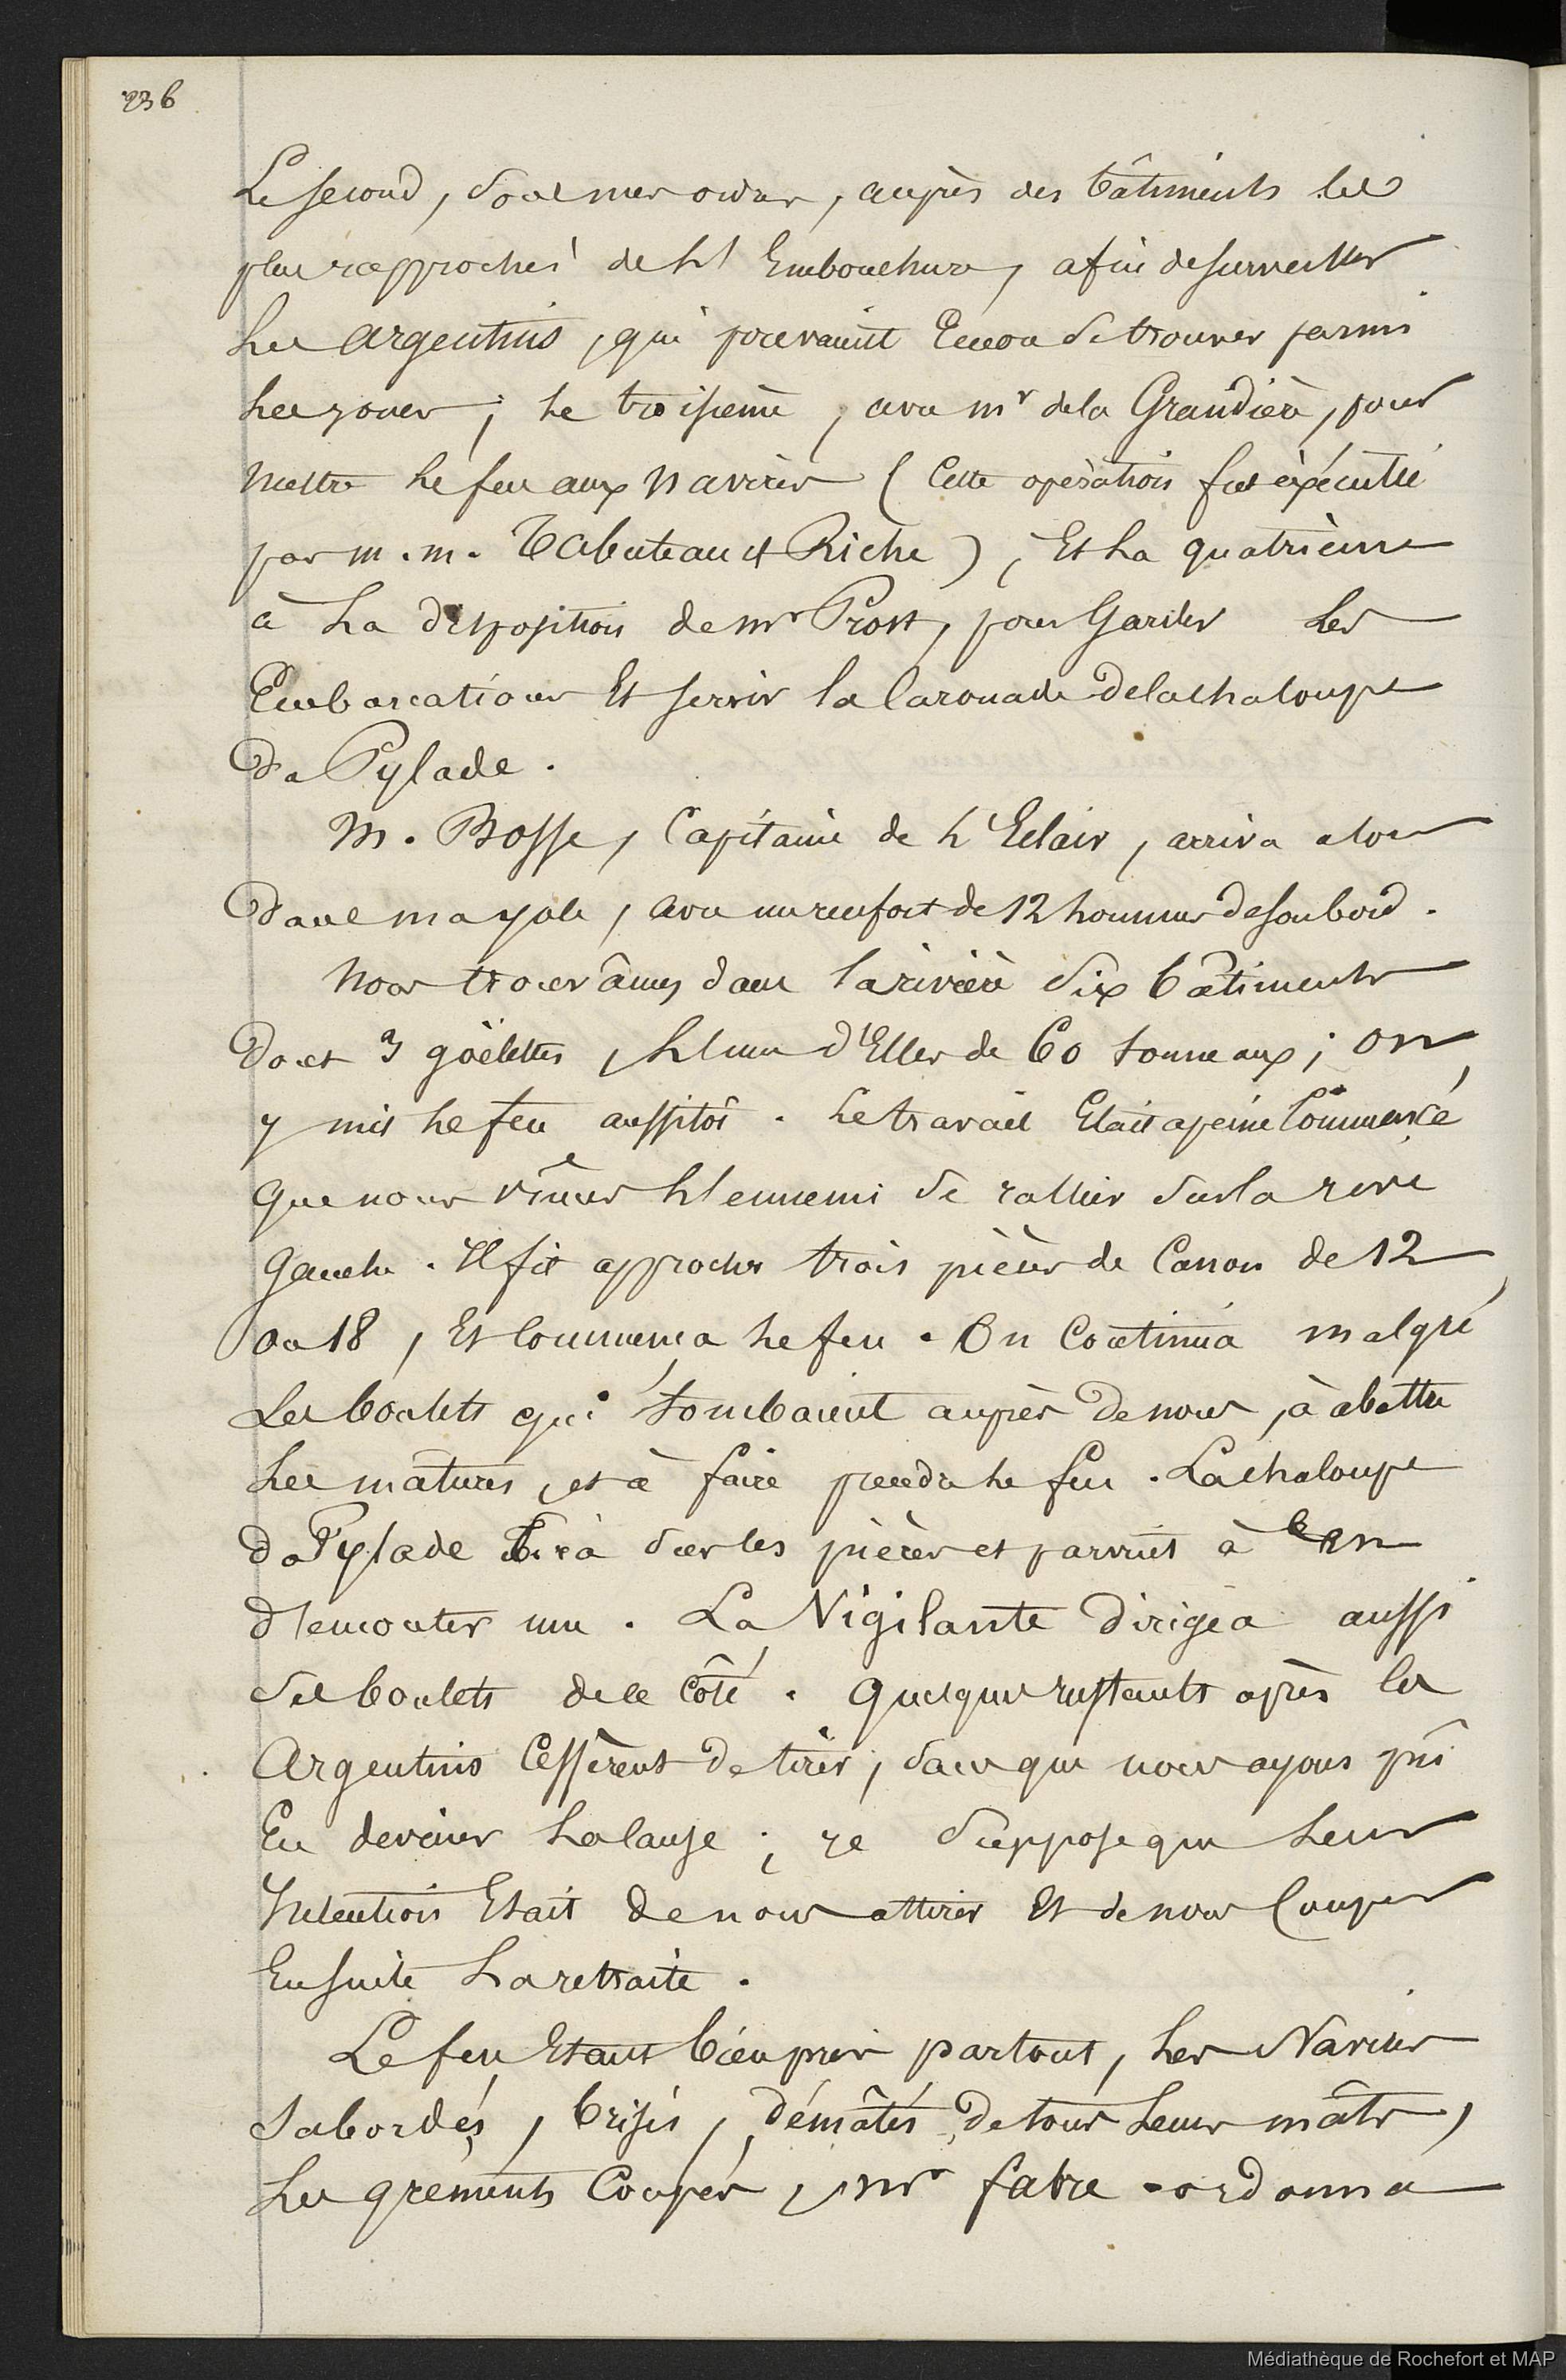 236
Le second, sous mes ordres, auprès des bâtiments les
plus rapprochés de l'Embouchure, afin de surveiller
les argentins, qui pouvaient Encore se trouver parmi
les joncs; le troisième, avec mr de la Grandière, pour
mettre le feu aux navires (Cette opération fut exécutée
par m.m. Tabuteau et Riche), Et la quatrième
à la disposition de mr Prost, pour Garder les
Embarcations Et servir la Caronade de la chaloupe
du Pylade.
M. Bosse, Capitaine de l'Eclair, arriva alors
dans ma yole, avec un renfort de 12 hommes de son bord.
Nous trouvâmes dans la rivière dix bâtiments
dont 3 goëlettes, l'une d'Elles de 60 tonneaux; on
y mit le feu aussitôt. Le travail Etait a peine Commencé
Que nous vîmes l'ennemi se rallier sur la rive
Gauche. Il fit approcher trois pièces de Canon de 12
ou 18, Et Commença le feu. On Continua malgré
Les boulets qui tombaient auprès de nous, à abattre
les mâtures, et à faire prendre le feu. La chaloupe
du Pylade tira sur les pièces et parvint à en
démonter une. La Vigilante dirigea aussi
ses boulets de ce Côté. Quelques instants après les
Argentins Cessèrent de tirer, sans que nous ayons pu
En deviner la Cause; je suppose que leur
Intention Etait de nous attirer Et de nous Couper
Ensuite la retraite.
Le feu Etant bien pris partout, les Navires
sabordés, brisés, démâtés de tous leurs mâts,
les gréments Coupés, mr fabre ordonna
Médiathèque de Rochefort et MAP